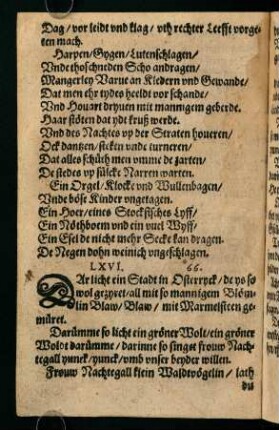 Dag / vor leidt vnd klag / vth rechter Leefft vorge-
ten mach.
Harpen / Gygen / Lutenschlagen /
Vnde thoschneden Scho andragen /
Mangerley Varue an Kledern vnd Gewande /
Dat men ehr tydes heeldt vor schande /
Vnd Houart dryuen mit mannigem geberde.
Haar flöten dat ydt kruß werde.
Vnd des Nachtes vp der Straten houeren /
Ock dantzen / steken vnde turneren /
Dat alles schüth men vmme de zarten /
De stedes vp sülcke Narren warten.
Ein Orgel / Klocke vnd Wullenbagen /
Vnde böse Kinder vngetagen.
Ein Hoer / eines Stockfisches Lyff /
Ein Nöthboem vnd ein vuel Wyff /
Ein Esel de nicht mehr Secke kan dragen.
De Negen dohn weinich vngeschlagen.
LXVI. 66.
DAr licht ein Stadt in Osterryck / de ys so
wol gezyret / all mit so mannigem Blöm-
lin Blaw / Blaw / mit Marmelsteen ge-
müret.
Darümme so licht ein gröner Wolt / ein gröner
Woldt darümme / darinne so singet frouw Nach-
tegall yunck / yunck / vmb vnser beyder willen.
Frouw Nachtegall klein Waldtvögelin / lath
du